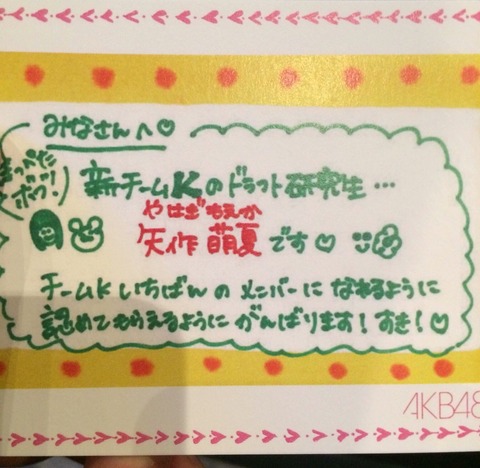 みなさんへ♡
ほっぺた
ポッ!
新チームKのドラフト研究生…
やはぎもえか
矢作 萌夏 です♡
チームKいちばんのメンバーになれるように
認めてもらえるようにがんばります!すき!♡
AKB48